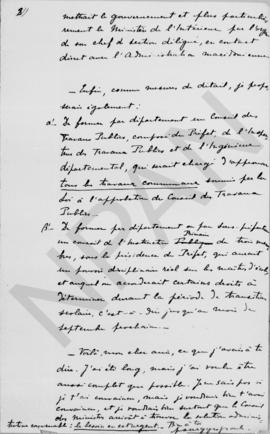 2//
mettrait le gouvernement et plus particuliè-
rement le Ministre de l'Intérieur par l'organe
de son chef de section délégué, en contact
direct avec l'Administration macédonienne
— Enfin, comme mesures de détail, je propo-
serais également :
a'. De former par département un Conseil des
Travaux Publics, composé du Préfet, de l'Inspec-
teur des Travaux Publics et de l'Ingénieur
départemental, qui serait chargé d'approuver
tous les travaux communaux soumis par la
loi à l'approbation du Conseil des Travaux
Publics.
β'. De former par département ou par sous-préfecture
un conseil de l'Instruction Primaire de trois mem-
bres, sous la présidence du Préfet, qui aurait
un pouvoir disciplinaire réel sur les maîtres d'école
et auquel on accorderait certains droits à
déterminer durant la période de transition
scolaire, c'est-à-dire jusqu'au mois de
septembre prochain. —
— Voilà, mon cher ami, ce que j'avais à te
dire. J'ai été long, mais j'ai voulu être
aussi complet que possible. Je ne sais pas si
je t'ai convaincu, mais je voudrais bien t'avoir
convaincu, et je voudrais bien surtout que le Conseil
des Ministres arrivât à trouver la solution admini-
strative convenable : le besoin en est urgent.